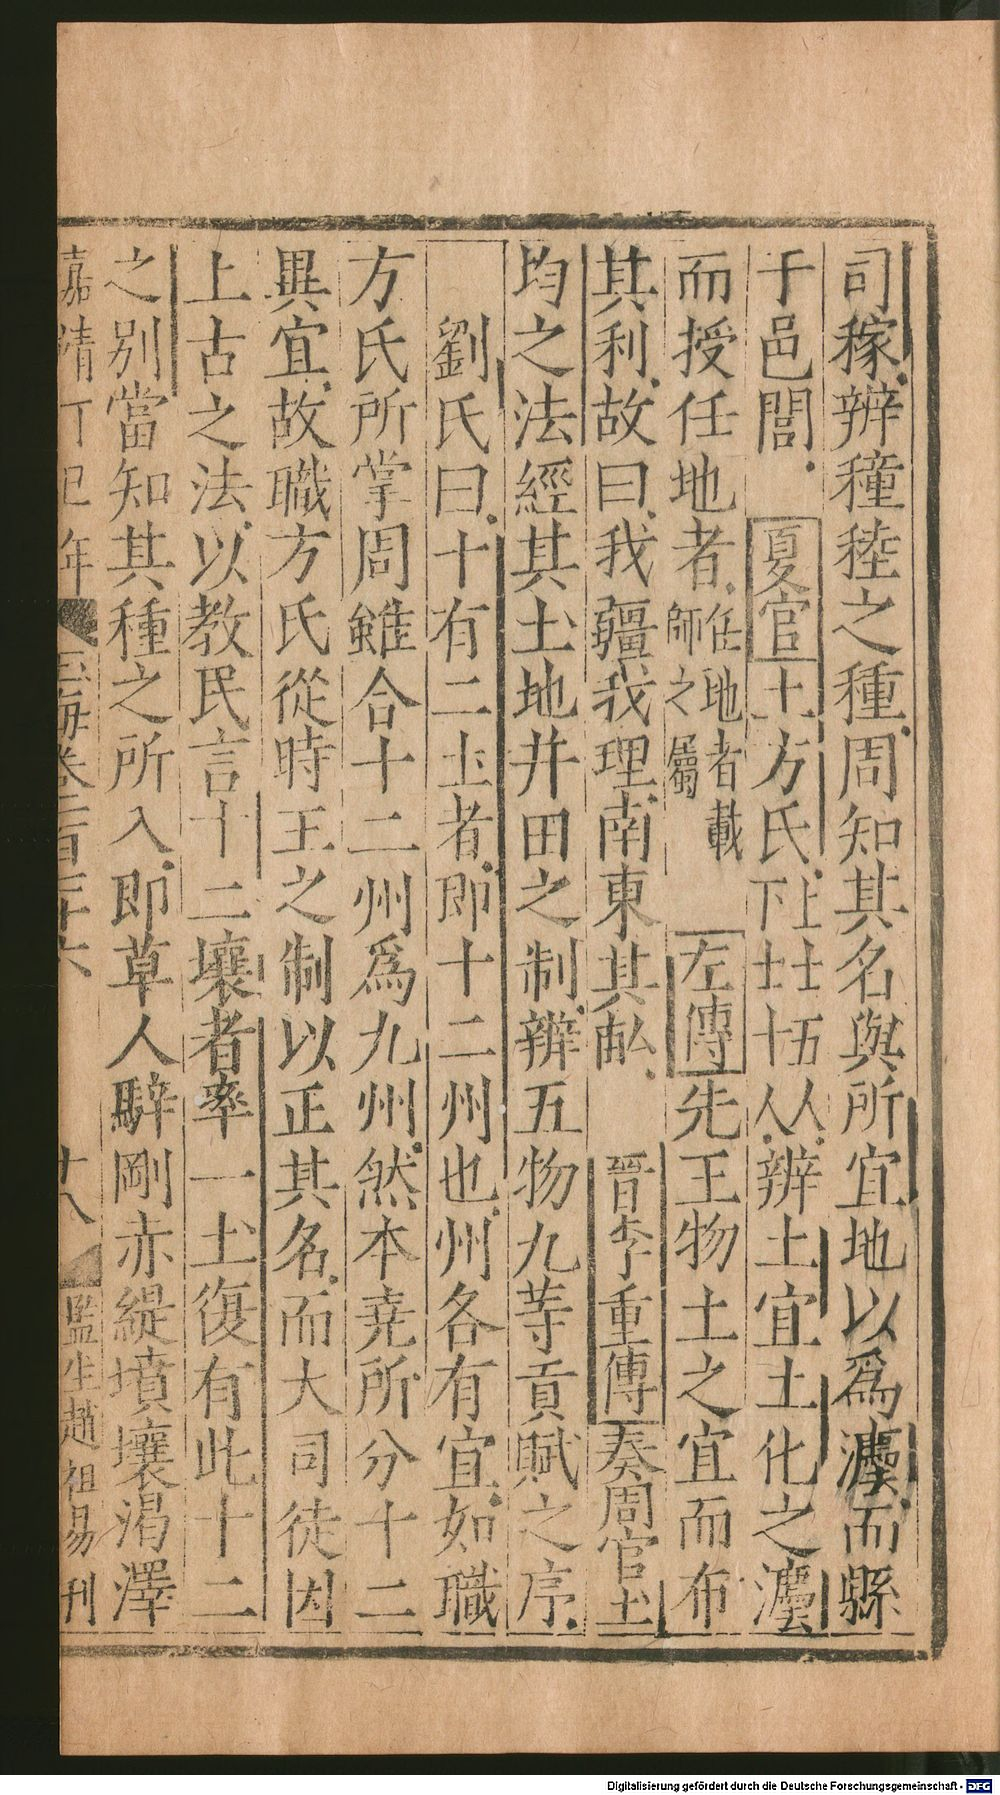 司稼辨穜稑之種周知其名與所宜地以爲灋而縣
于邑閭夏官土方氏上士五人下士十人辨土宜土化之灋
而授任地者任地者載師之屬左傳先王物土之宜而布
其利故曰我疆我理南東其畝晉李重傳奏周官土
均之法經其土地井田之制辨五物九等貢賦之序
劉氏曰十有二土者即十二州也州各有宜如職
方氏所掌周雖合十二州爲九州然本堯所分十二
異宜故職方氏從時王之制以正其名而大司徒因
上古之法以教民言十二壤者率一土復有此十二
之別當知其種之所入即草人騂剛赤緹墳壤渴澤
嘉靖丁巳年 玉海卷一百七十六 十八 監生趙祖易刊
Digitalisierung gefördert durch die Deutsche Forschungsgemeinschaft - DFG